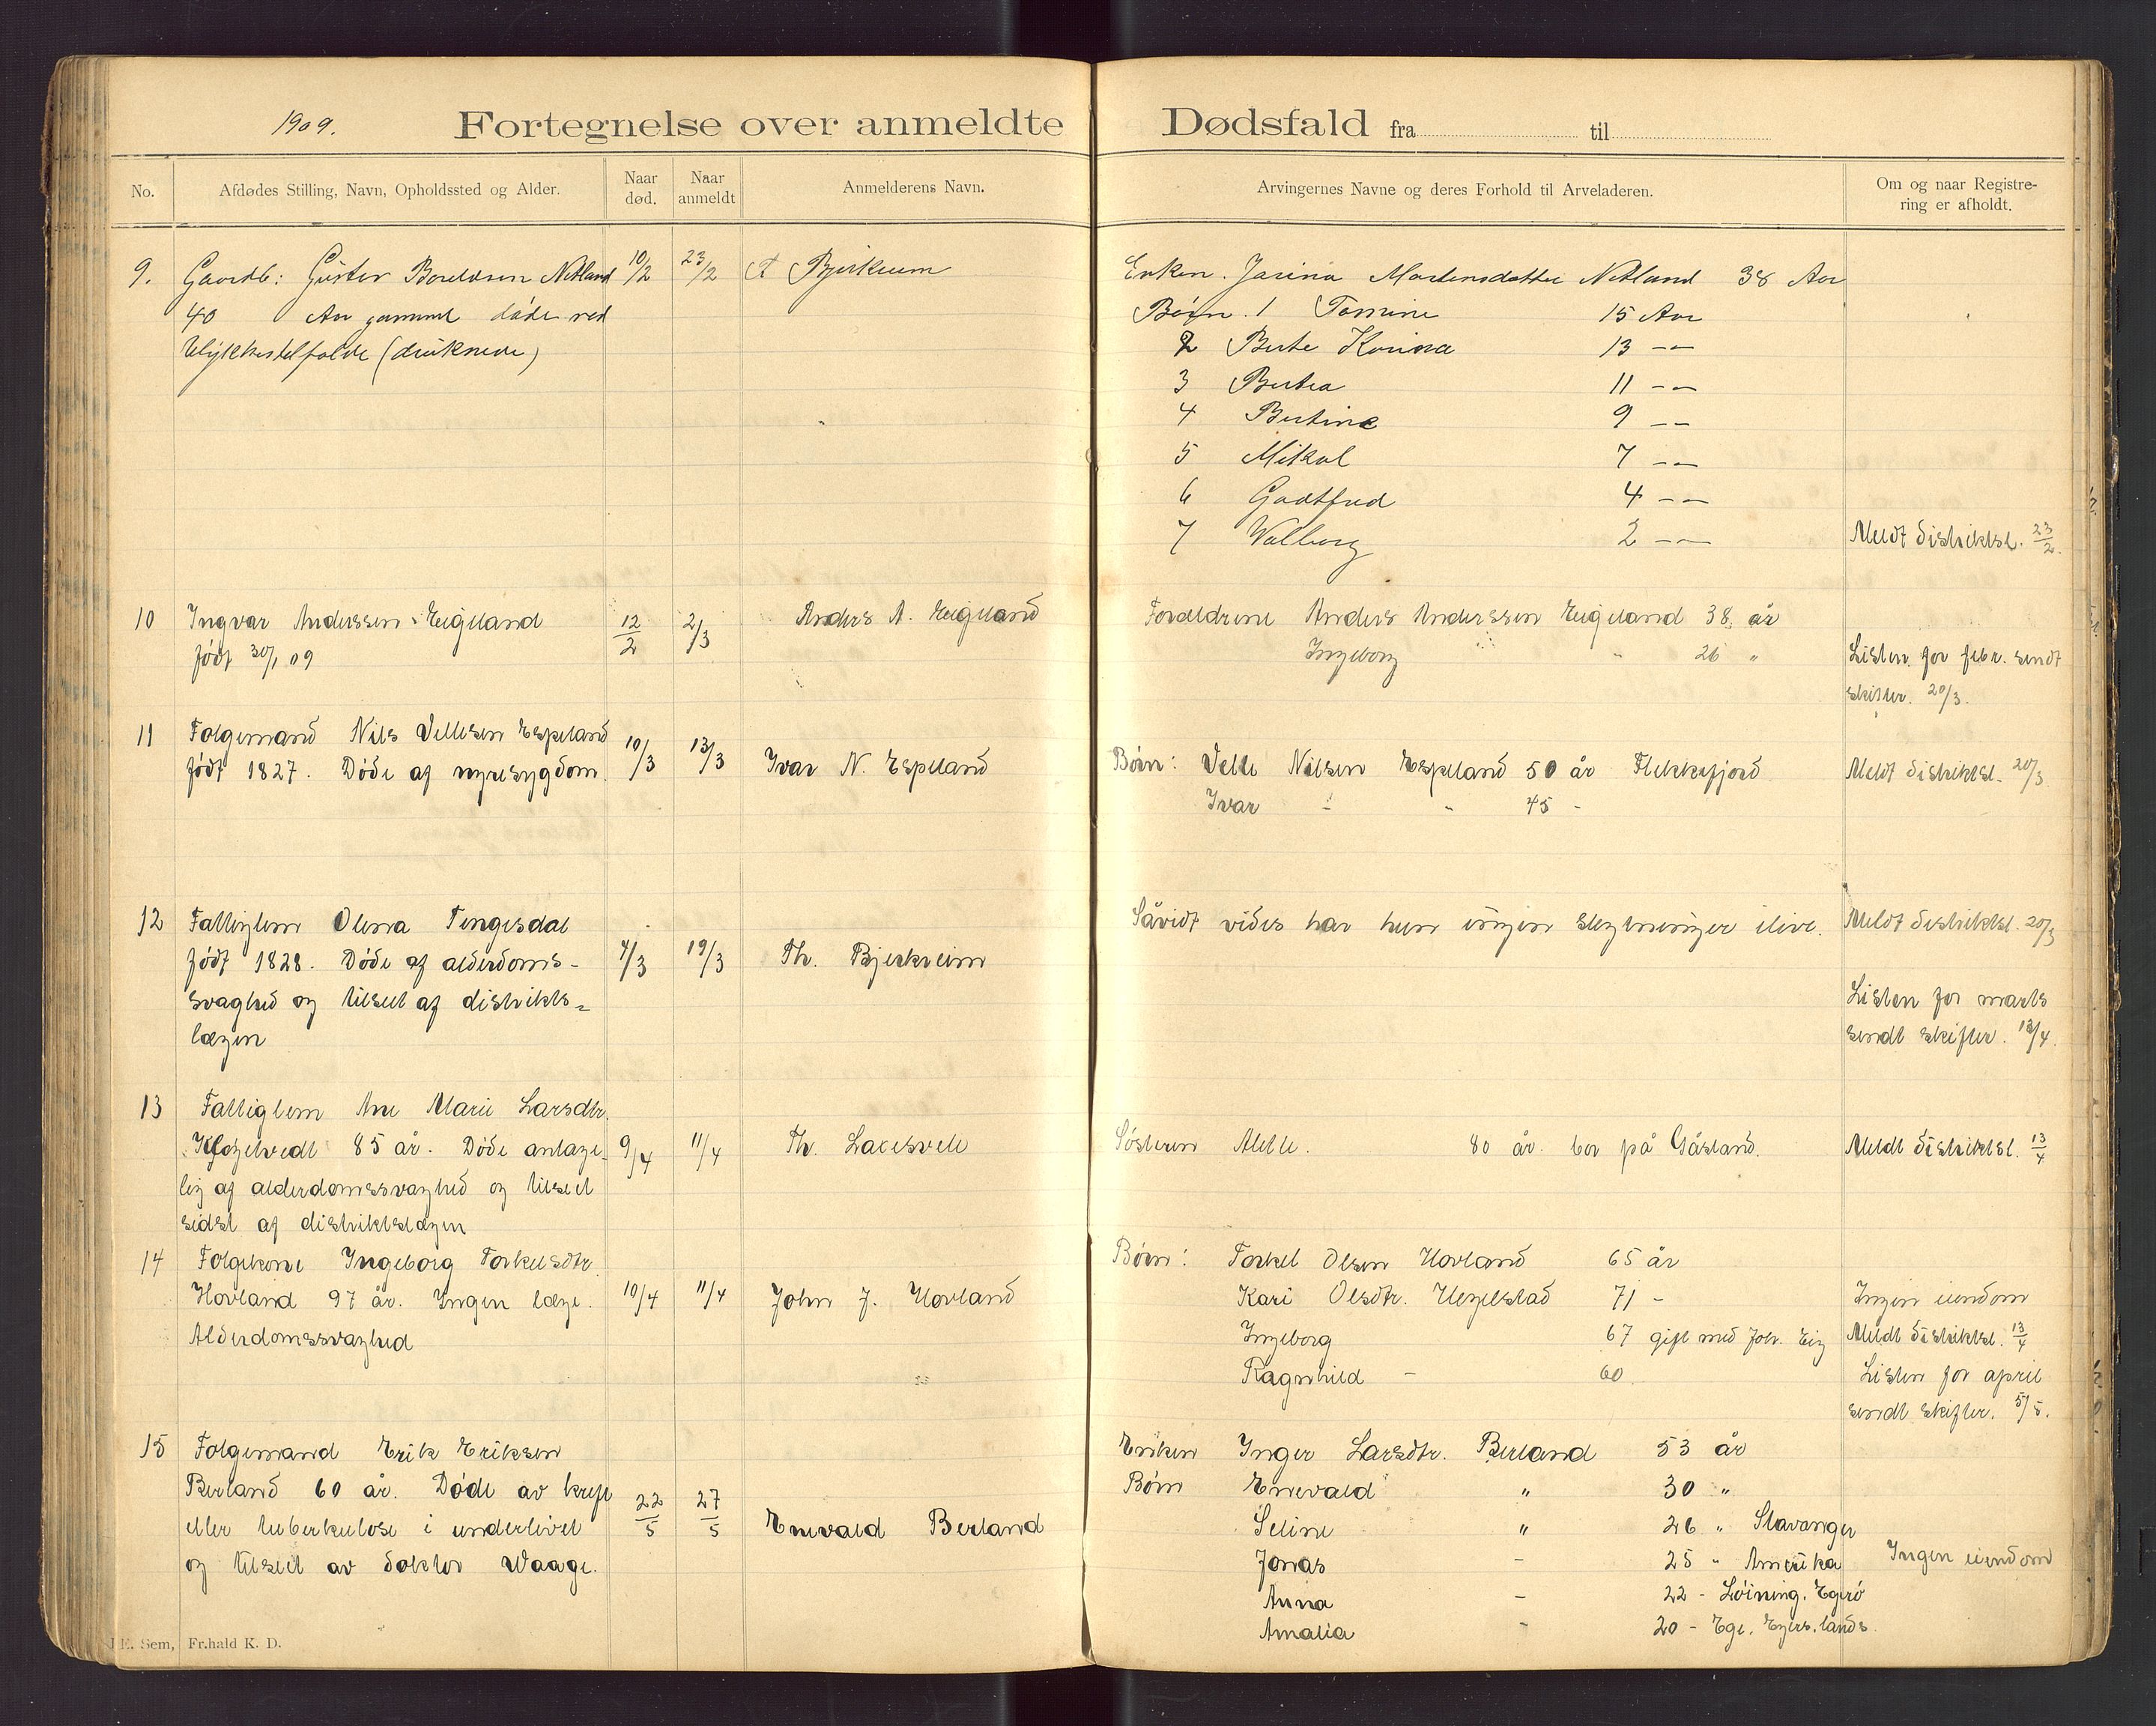 1909.
Fortegnelse over anmeldte Dødsfald fra til
No.
Afdødes Stilling, Navn, Opholdssted og Alder.
Naar død.
Naar anmeldt
Anmelderens Navn.
Arvingernes Navne og deres Forhold til Arveladeren.
Om og naar Registrering er afholdt.
9. Gaardb: Gustav Netland 10/2 23/2 Bjerkreim
40 Aar gammel døde ved
Ulykkestilfælde (druknede)
Enken. Jasina Martensdatter Netland 38 Aar
Børn. 1 Tomine 15 Aar
2 Berte Karina 13 — —
3 Bertea 11 — —
4 Bertine 9 — —
5 Mikal 7 — —
6 Godtfred 4 — —
7 Walborg 2 — — Meldt distriktsl. 23/2.
10 Ingvar Anderssen Eigeland 12/2 2/3 Anders A. Eigeland
født 30/1 09
Forældrene Anders Anderssen Eigeland 38 år
Ingeborg " 26 "
Listen for febr. sendt
skifter. 20/3.
11 Folgemand Nils Vellesen Espeland 10/3 13/3 Ivar N. Espeland
født 1827. Døde af nyresygdom.
Børn: Velle Nilsen Espeland 50 år Flekkefjord Meldt distriktsl. 20/3
Ivar - " 45 -
12 Fattiglem Olena Tengesdal
født 1828. Døde af alderdoms- 4/3 19/3 Th. Bjerkreim
svaghed og tilseet af distrikts-
lægen
Såvidt vides har hun ingen slegtninger ilive. Meldt distriktsl. 20/3
Listen for marts
sendt skifter. 13/4.
13 Fattiglem Ane Marie Larsdtr.
85 år. Døde antage- 9/4 11/4 Th. Laxesvele
lig af alderdomssvaghed og tilseet
sidst af distriktslægen
Søsteren Mette. 80 år. bor på Gåsland. Meldt distriktsl. 13/4
14 Folgekone Ingeborg Torkelsdtr.
Hovland 97 år. Ingen læge. 10/4 11/4 John J. Hovland
Alderdomssvaghed
Børn: Torkel Olsen Hovland 65 år
Kari Olsdtr. Hegelstad 71 - Ingen eiendom
Ingeborg 67 gift med Joh. Eig Meldt distriktsl. 13/4
Ragnhild - 60 Listen for april
sendt skifter. 5/5.
15 Folgemand Erik Eriksen
Berland 60 år. Døde av kreft
eller tuberkulose i underlivet 22/5 27/5 Enevald Berland
og tilseet av doktor Waage.
Enken Inger Larsdtr. Berland 53 år
Børn Enevald " 30 "
Seline " 26 " Stavanger
Jonas - 25 " Amerika Ingen eiendom
Anna - 22 - Løining. Egerø
Amalia - 20 - Ege. Egers. lands.
E. Sem, Fr.hald K. D.